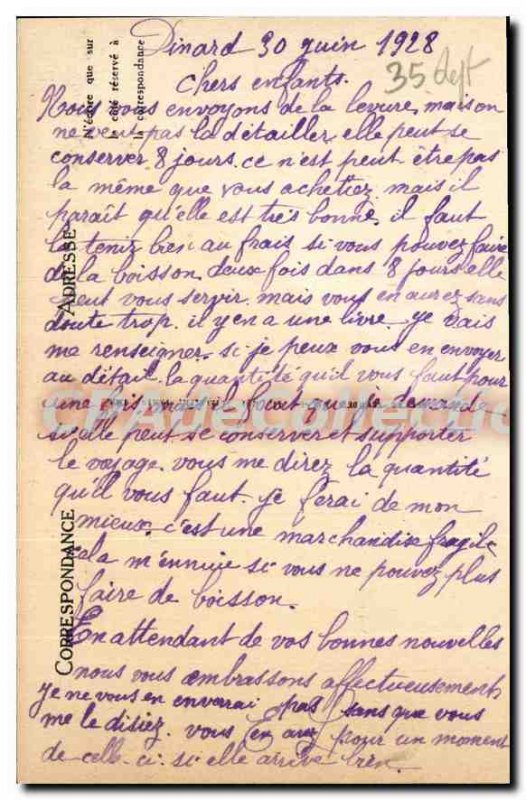 Dinard 30 juin 1928
35 dept
chers enfants.
Nous vous envoyons de la levure, maison
ne veut pas la détailler, elle peut se
conserver 8 jours. ce n'est peut être pas
la même que vous achetiez mais il
paraît qu'elle est très bonne, il faut
la tenir bien au frais si vous pouvez faire
de la boisson deux fois dans 8 jours elle
peut vous servir. mais vous en aurez sans
doute trop. il y en a une livre. je vais
me renseigner. si je peux vous en envoyer
au détail. la quantité qu'il vous faut pour
une fois mais il faut que je demande
si elle peut se conserver et supporter
le voyage. vous me direz la quantité
qu'il vous faut. je ferai de mon
mieux. c'est une marchandise fragile
cela m'ennuie si vous ne pouvez plus
faire de boisson.
En attendant de vos bonnes nouvelles
nous vous embrassons affectueusement
je ne vous en enverrai pas sans que vous
me le disiez. vous en avez pour un moment
de celle-ci. si elle arrive bien.
N'écrire que sur
le côté réservé à
la correspondance
ADRESSE
CORRESPONDANCE
CPAdeCollection.com